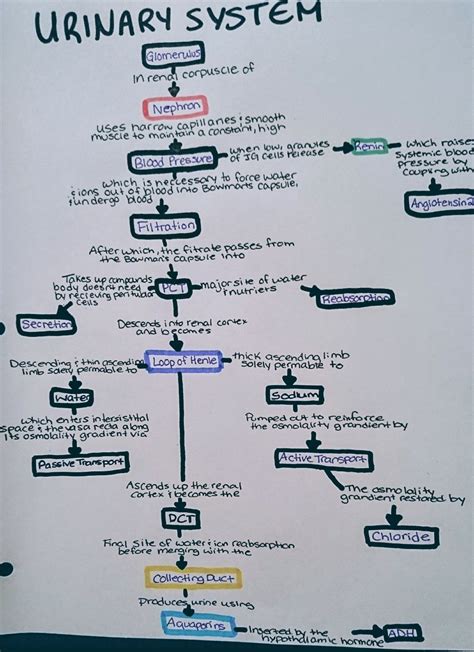 URINARY SYSTEM
Glomerulus
In renal corpuscle of
Nephron
uses narrow capillaries & smooth
muscle to maintain a constant, high
Blood Pressure
when low, granules
of JG cells release
Renin
which raises
systemic blood
pressure by
coupling with
Angiotensin2
which is neccessary to force water
& ions out of blood into Bowman's capsule,
& undergo blood
Filtration
After which, the filtrate passes from
the Bowman's capsule into
PCT
Takes up compounds
body doesn't need
by recieving peritubular
cells
Secretion
major site of water
& nutriers
Reabsorption
Descends into renal cortex
and becomes
Loop of Henle
Descending & thin ascending
limb solely permable to
Water
which enters interstitial
space & the vasa recta along
its osmolality gradient via
Passive Transport
thick ascending limb
solely permable to
Sodium
Pumped out to reinforce
the osmolality grandient by
Active Transport
The osmolality
grandient restored by
Chloride
Ascends up the renal
cortex & becomes the
DCT
Final site of water & ion reabsorption
before merging with the
Collecting Duct
Produces urine using
Aquaporins
Inserted by the
hypothalamic hormone
ADH